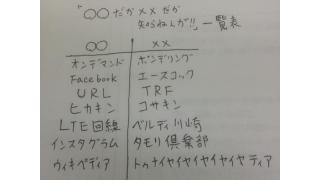 「〇〇だか××だか
知らねんが!!」一覧表
〇〇 ××
オンデマンド ボンデリング
Facebook エースコック
URL TRF
ヒカキン コサキン
LTE回線 ベルディ川崎
インスタグラム タモリ倶楽部
ウィキペディア トゥナイヤイヤイヤイヤイヤ ティア